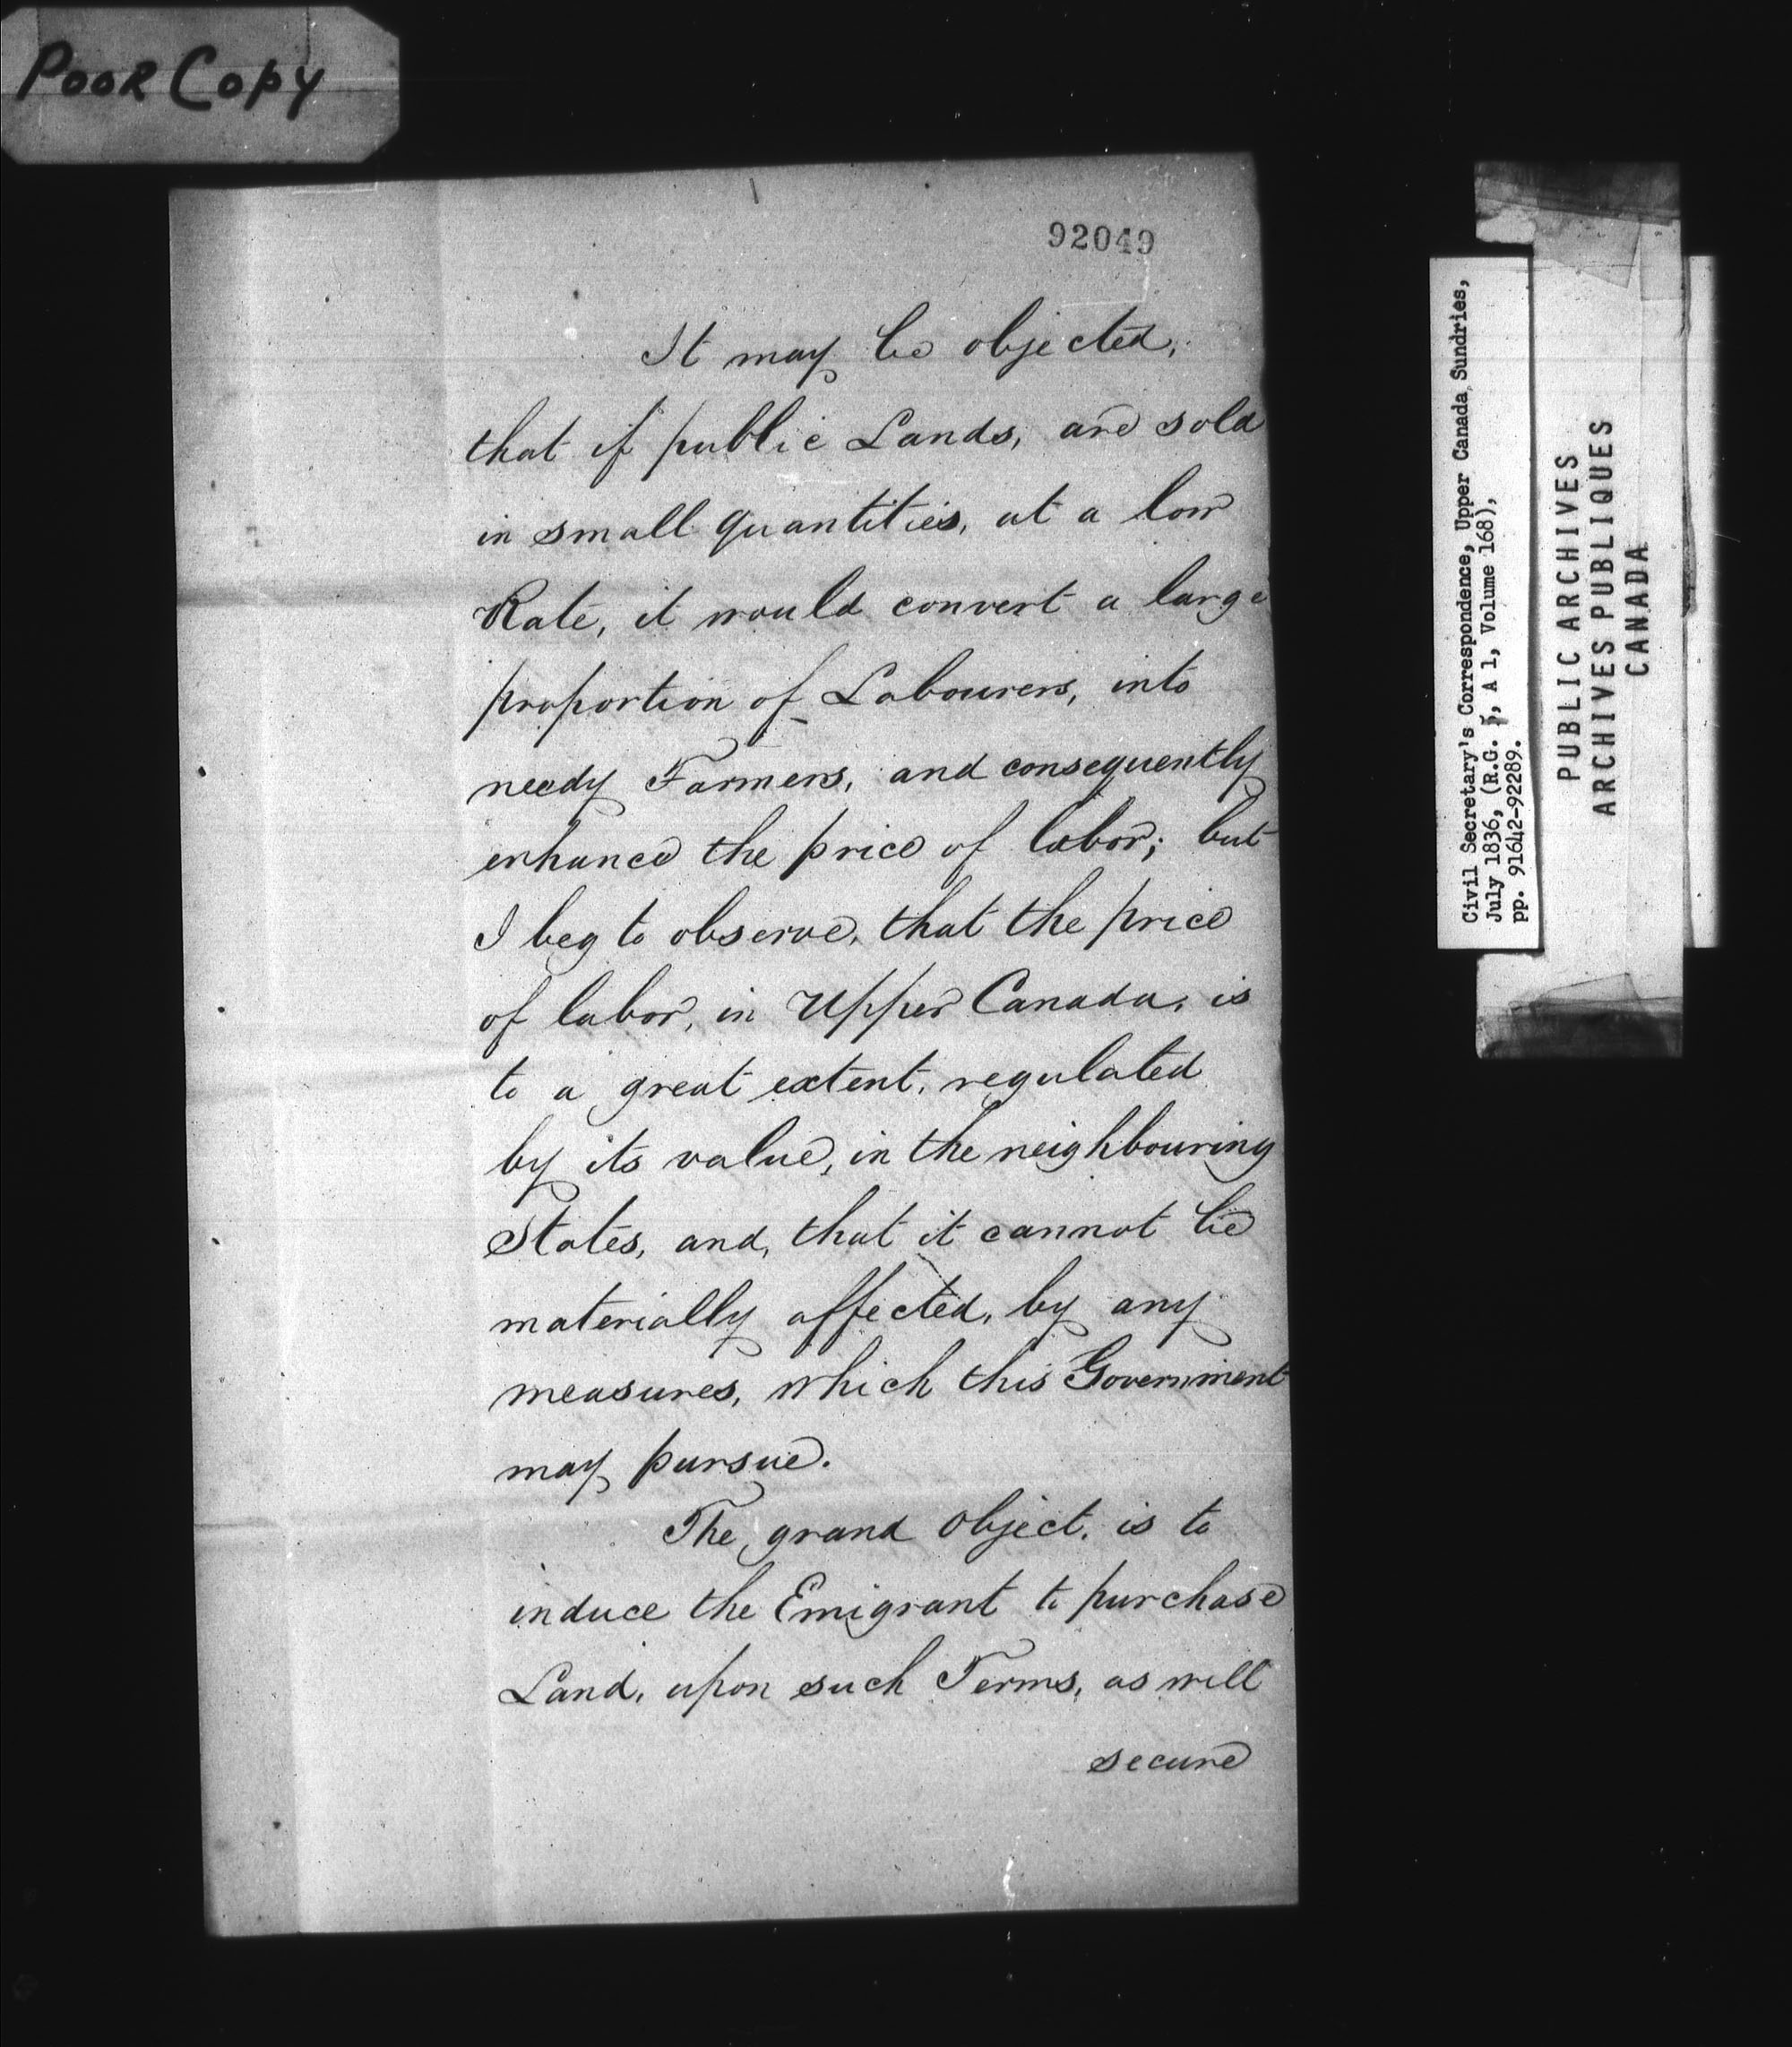 Poor Copy
92049
It may be objected,
that if public Lands, are sold
in small quantities, at a low
Rate, it would convert a large
proportion of Labourers, into
needy Farmers, and consequently
enhance the price of labor; but
I beg to observe, that the price
of labor, in Upper Canada, is
to a great extent, regulated
by its value, in the neighbouring
States, and, that it cannot be
materially affected, by any
measures, which this Government
may pursue.
The grand object, is to
induce the Emigrant to purchase
Land, upon such Terms, as will
secure
Civil Secretary's Correspondence, Upper Canada Sundries,
July 1836, (R.G. 5, A 1, Volume 168),
pp. 91642-92289.
PUBLIC ARCHIVES
ARCHIVES PUBLIQUES
CANADA